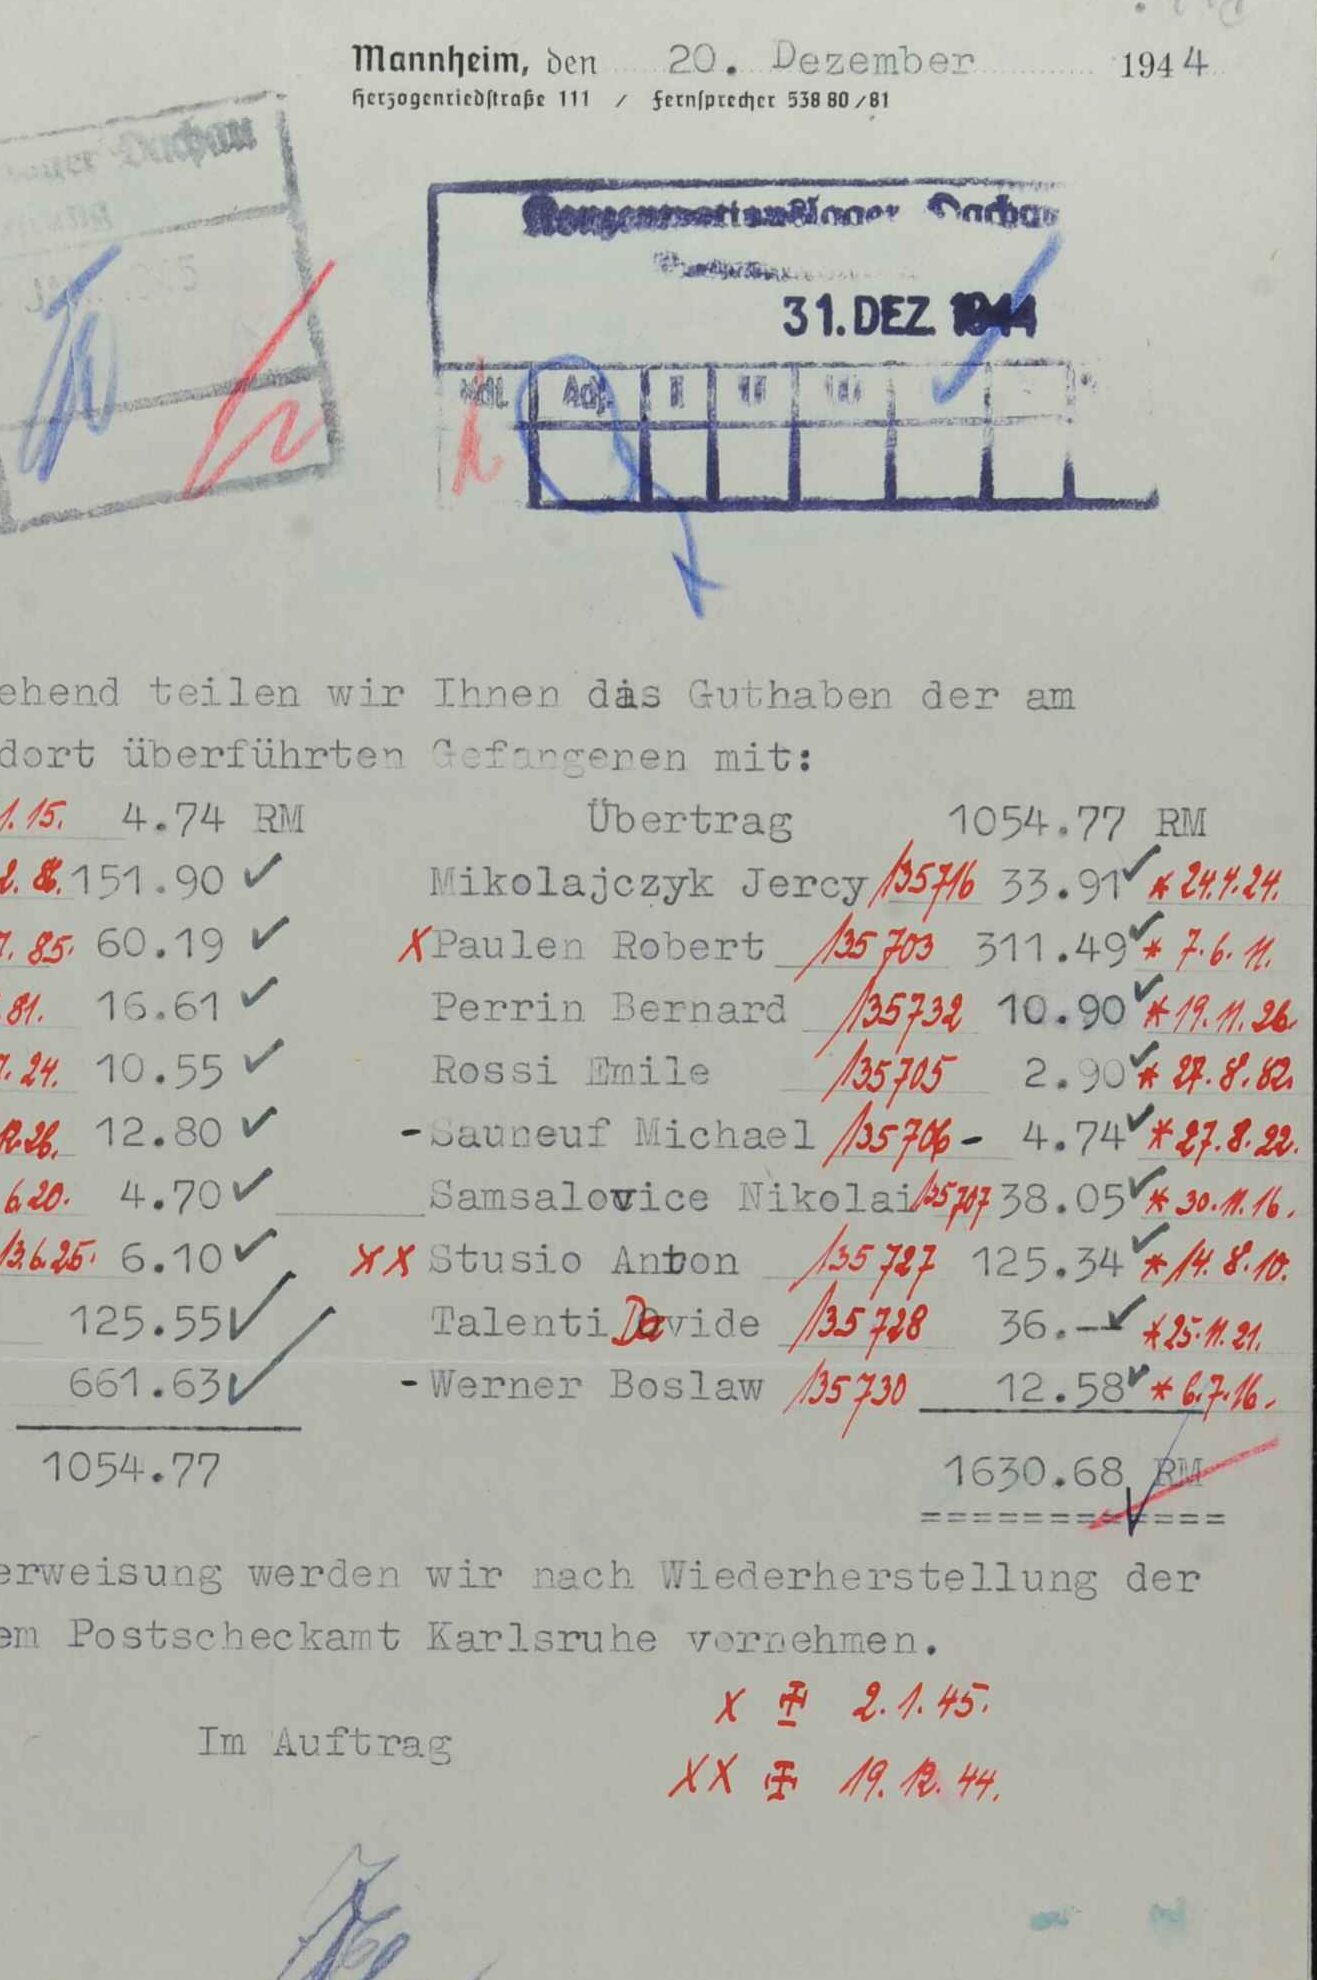 Mannheim, den 20. Dezember 1944
Herzogenriedstraße 111 / Fernsprecher 538 80/81
Dachau
Konzentrationslager Dachau
31. DEZ. 1944
Adj. I II III
ehend teilen wir Ihnen das Guthaben der am
dort überführten Gefangenen mit:
1.15. 4.74 RM Übertrag 1054.77 RM
151.90 ✓ Mikolajczyk Jercy 135716 33.91 ✓ * 24.4.24.
85. 60.19 ✓ X Paulen Robert 135703 311.49 ✓ * 7.6.11.
81. 16.61 ✓ Perrin Bernard 135732 10.90 ✓ * 19.11.26.
24. 10.55 ✓ Rossi Emile 135705 2.90 ✓ * 27.8.82.
26. 12.80 ✓ - Sauneuf Michael 135706 - 4.74 ✓ * 27.8.22.
6.20. 4.70 ✓ Samsalovice Nikolai 135707 38.05 ✓ * 30.11.16.
13.6.25. 6.10 ✓ XX Stusio Anton 135727 125.34 ✓ * 14.8.10.
125.55 ✓ Talenti Davide 135728 36.-- ✓ * 25.11.21.
661.63 ✓ - Werner Boslaw 135730 12.58 ✓ * 6.7.16.
1054.77 1630.68 RM
============
erweisung werden wir nach Wiederherstellung der
em Postscheckamt Karlsruhe vornehmen.
X 2.1.45.
Im Auftrag
XX 19.12.44.